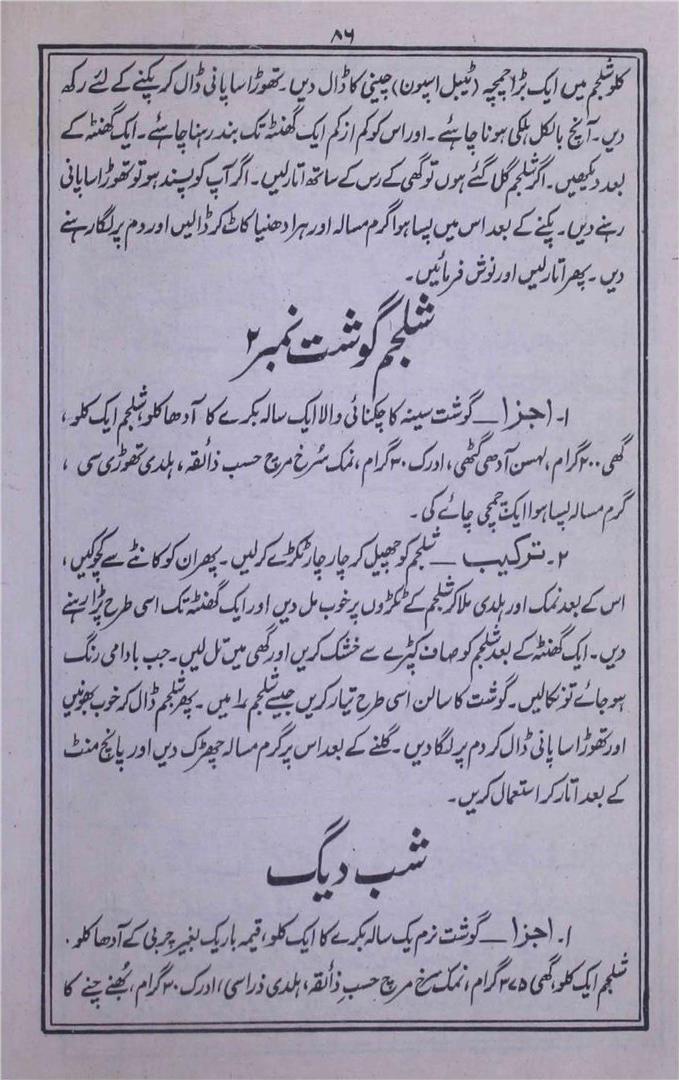 ۸۶
کلو شلجم میں ایک بڑا چمچہ (ٹیبل اسپون) چینی کا ڈال دیں۔ تھوڑا سا پانی ڈال کر پکنے کے لئے رکھ
دیں۔ آنچ بالکل ہلکی ہونا چاہئے۔ اور اس کو کم از کم ایک گھنٹہ تک بند رہنا چاہئے۔ ایک گھنٹہ کے
بعد دیکھیں۔ اگر شلجم گل گئے ہوں تو گھی کے رس کے ساتھ اتارلیں۔ اگر آپ کو پسند ہو تو تھوڑا سا پانی
رہنے دیں۔ پکنے کے بعد اس میں پسا ہوا گرم مسالہ اور ہرا دھنیا کاٹ کر ڈالیں اور دم پر لگا رہنے
دیں۔ پھر اتارلیں اور نوش فرمائیں۔
شلجم گوشت نمبر ۲
۱۔ اجزا — گوشت سینہ کا چکنائی والا ایک سالہ بکرے کا آدھا کلو، شلجم ایک کلو،
گھی ۲۰۰ گرام، لہسن آدھی گٹھی، ادرک ۳۰ گرام، نمک سُرخ مرچ حسب ذائقہ، ہلدی تھوڑی سی،
گرم مسالہ پسا ہوا ایک چمچی چائے کی۔
۲۔ ترکیب — شلجم کو چھیل کر چار چار ٹکڑے کرلیں۔ پھر ان کو کانٹے سے کچوکیں،
اس کے بعد نمک اور ہلدی ملا کر شلجم کے ٹکڑوں پر خوب مل دیں اور ایک گھنٹہ تک اسی طرح پڑا رہنے
دیں۔ ایک گھنٹہ کے بعد شلجم کو صاف کپڑے سے خشک کریں اور گھی میں تل لیں۔ جب بادامی رنگ
ہو جائے تو نکالیں۔ گوشت کا سالن اسی طرح تیار کریں جیسے شلجم ۱ میں۔ پھر شلجم ڈال کر خوب بھونیں
اور تھوڑا سا پانی ڈال کر دم پر لگا دیں۔ گلنے کے بعد اس پر گرم مسالہ چھڑک دیں اور پانچ منٹ
کے بعد اتار کر استعمال کریں۔
شب دیگ
۱۔ اجزا — گوشت نرم یک سالہ بکرے کا ایک کلو، قیمہ باریک بغیر چربی کے آدھا کلو۔
شلجم ایک کلو، گھی ۳۷۵ گرام، نمک سرخ مرچ حسبِ ذائقہ، ہلدی ذراسی، ادرک ۳۰ گرام، بُھنے چنے کا